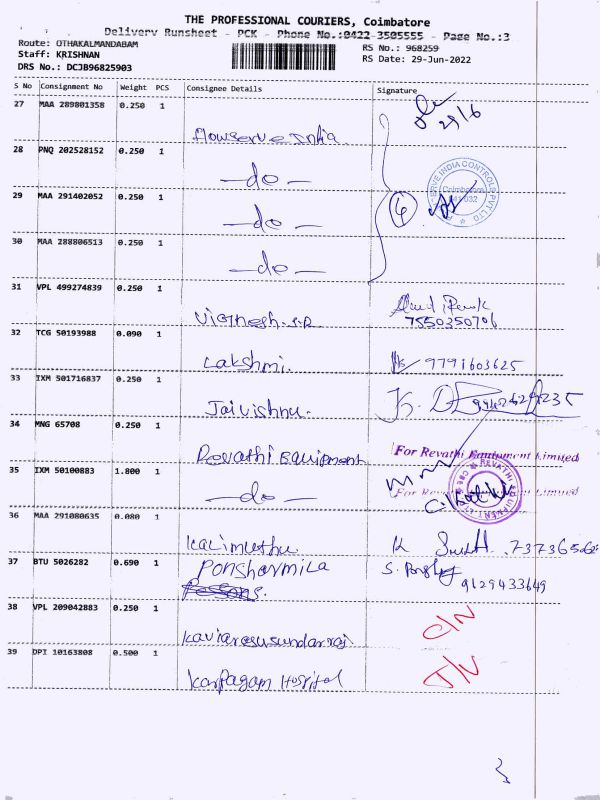 THE PROFESSIONAL COURIERS, Coimbatore
Delivery Runsheet - PCK - Phone No.:0422-3505555 - Page No.:3
Route: OTHAKALMANDABAM
Staff: KRISHNAN
DRS No.: DCJB96825903
RS No.: 968259
RS Date: 29-Jun-2022
S No Consignment No Weight PCS Consignee Details Signature
27 MAA 289801358 0.250 1
Flowserve India
29/6
28 PNQ 202528152 0.250 1
—do—
29 MAA 291402052 0.250 1
—do—
4
30 MAA 288806513 0.250 1
—do—
31 VPL 499274839 0.250 1
Vignesh.S.R
7550350706
32 TCG 50193988 0.090 1
Lakshmi.
9791603625
33 IXM 501716837 0.250 1
Jaivishnu.
34 MNG 65708 0.250 1
Revathi Equipment
For Revathi Equipment Limited
35 IXM 50100883 1.800 1
—do—
For Revathi Equipment Limited
36 MAA 291080635 0.080 1
Kalimuthu
37 BTU 5026282 0.690 1
Ponsharmila
9129433649
38 VPL 209042883 0.250 1
Kaviarasusundarraj
C/N
39 DPI 10163808 0.500 1
Karpagam Hospital
I/N